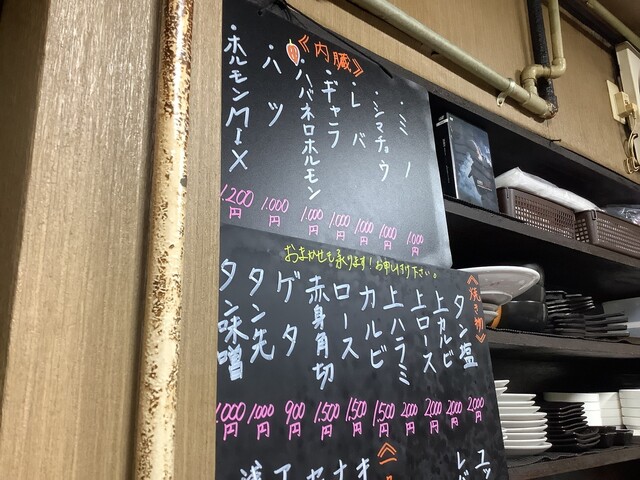 《内臓》
・ミノ 1.000円
・シマチョウ 1.000円
・レバ 1.000円
・ギャラ 1.000円
・ハバネロホルモン 1.000円
・ハツ 1.000円
・ホルモンMIX 1.200円
おまかせも承ります!お申し付け下さい。
《焼き物》
タン塩 2.000円
上カルビ 2000円
上ロース 2000円
上ハラミ 2000円
カルビ 1,500円
ロース 1,500円
赤身角切 1.500円
ゲタ 900円
タン先 1.000円
タン味噌 1.000円
《一
ユッ
レバ
キ
ナ
セ
ア
浅